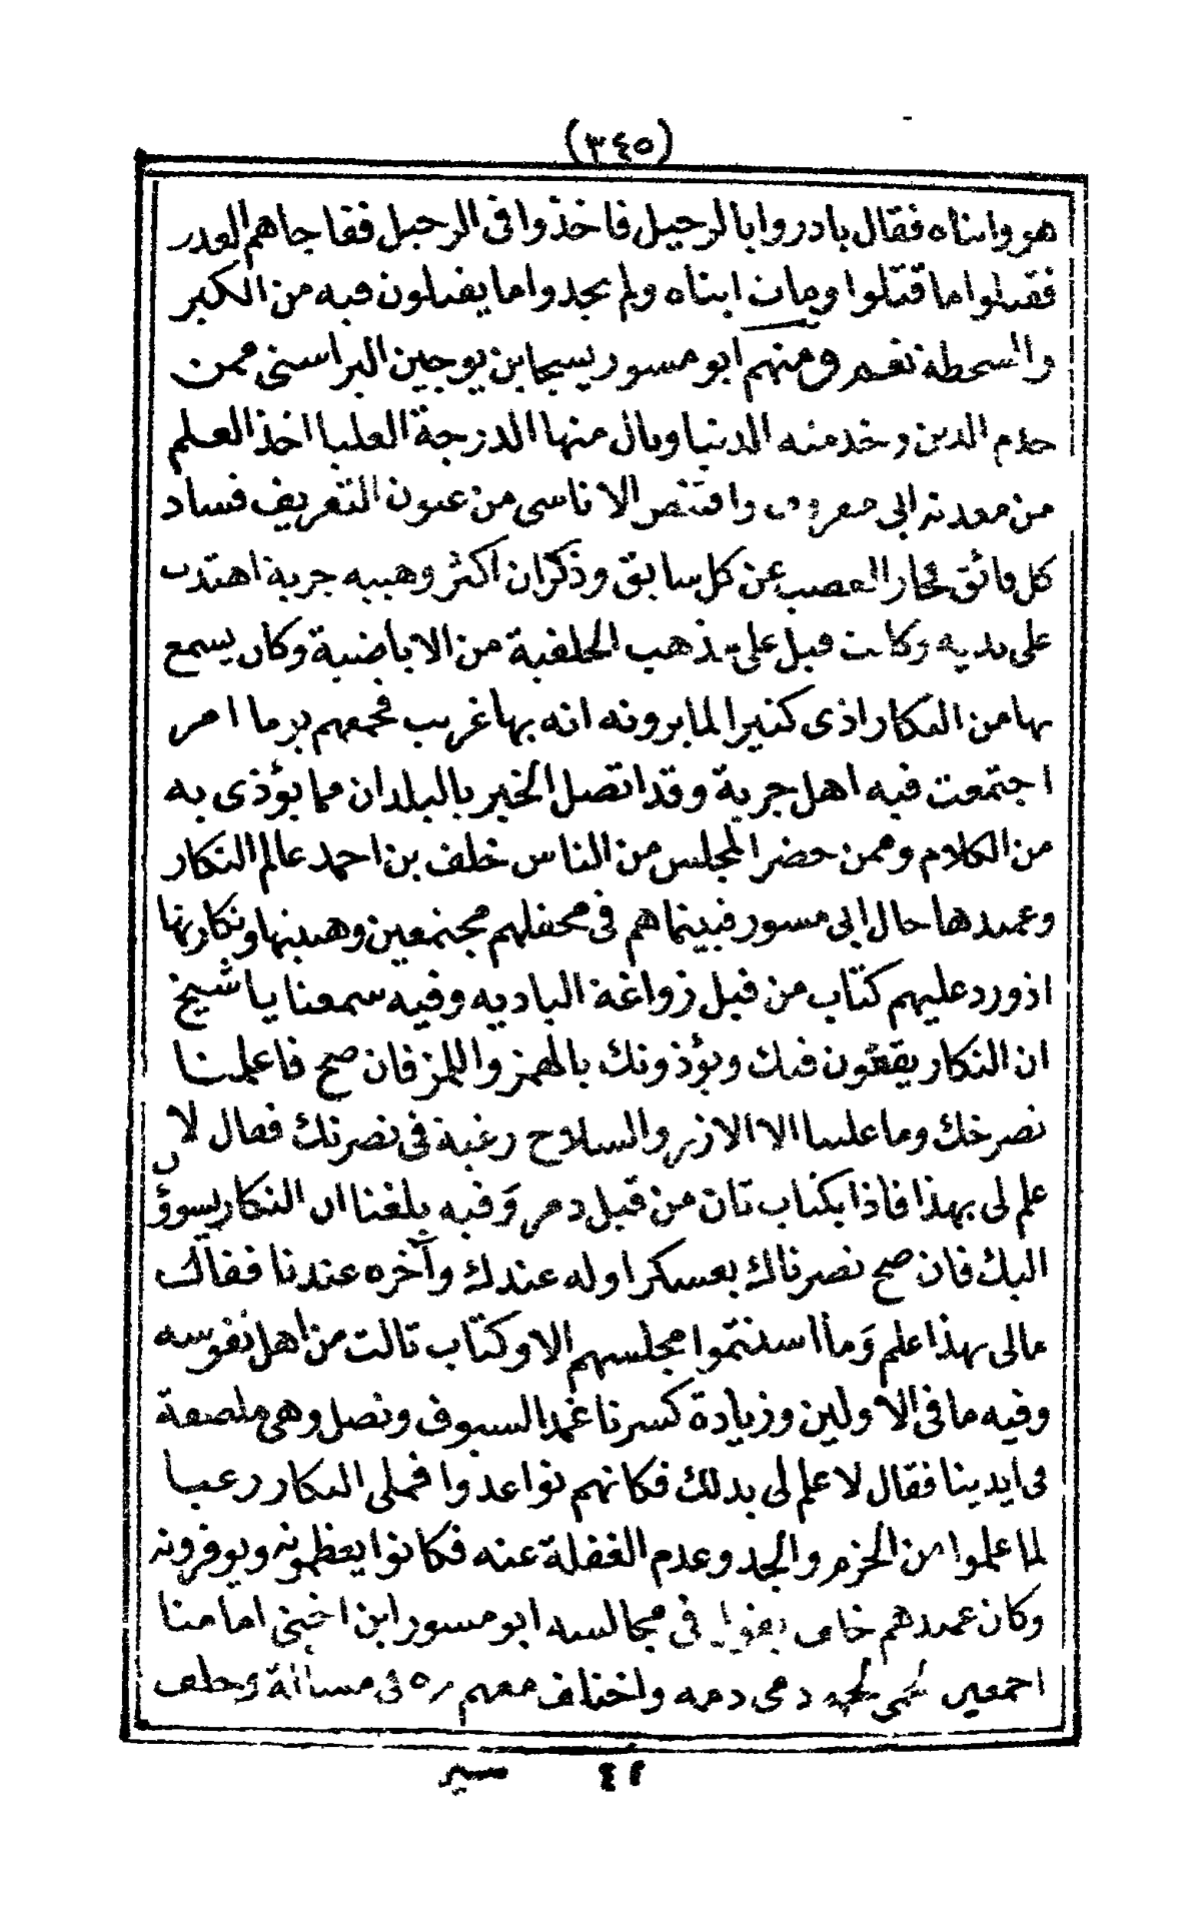 (٣٤٥)
هو وابناه فقال بادروا بالرحيل فاخذوا فى الرحيل ففاجاهم العدر
فقتلوا ما قتلوا ومات ابناه ولم يجدوا ما يفتلون فيه من الكبر
والسحطة ومنهم ابو مسور يسجا بن يوجين اليراسنى ممن
خدم الدين وخدمته الدنيا ونال منها الدرجة العليا اخذ العلم
من معدنه ابى معروف واقتنص الاناسى من عيون التعريف فساد
كل فائق فحاز القصب عن كل سابق وذكر ان اكثر وهبيه جربة اهتدت
على يديه وكانت قبل على مذهب الخلفية من الاباضية وكان يسمع
بها من النكار اذى كثيرا لما يرونه انه بها غريب فجمعهم يوما امر
اجتمعت فيه اهل جربة وقد اتصل الخبر بالبلدان مما يؤذى به
من الكلام وممن حضر المجلس من الناس خلف بن احمد عالم النكار
وعميدها حال ابى مسور فبينما هم فى محفلهم مجتمعين وهبيتها ونكاريتها
اذ ورد عليهم كتاب من قبل زواغة الباديه وفيه سمعنا يا شيخ
ان النكار يقعون فيك ويؤذونك بالهمز واللمز فان صح فاعلمنا
نصرخك وما علينا الا الازر والسلاح رغبة فى نصرتك فقال لا
علم لى بهذا فاذا بكتاب ثان من قبل دمر وفيه بلغنا ان النكار يسوؤن
اليك فان صح نصرناك بعسكر اوله عندك وآخره عندنا فقال
مالى بهذا علم وما استتموا مجلسهم الا وكتاب ثالث من اهل نفوسه
وفيه ما فى الاولين وزيادة كسرنا غمد السيوف ونصل وهى ملصقة
فى ايدينا فقال لا علم لى بذلك فكانهم تواعدوا فملى النكار رعبا
لما علموا من الحزم والجد وعدم الغفلة عنه فكانوا يعظمونه ويوفرونه
وكان عميدهم خلف يقول فى مجالسه ابو مسور ابن اختى امامنا
اجمعين لحمى لحمه دمى دمه واختلف معهم مره فى مسألة وخلف
٤٤ سير